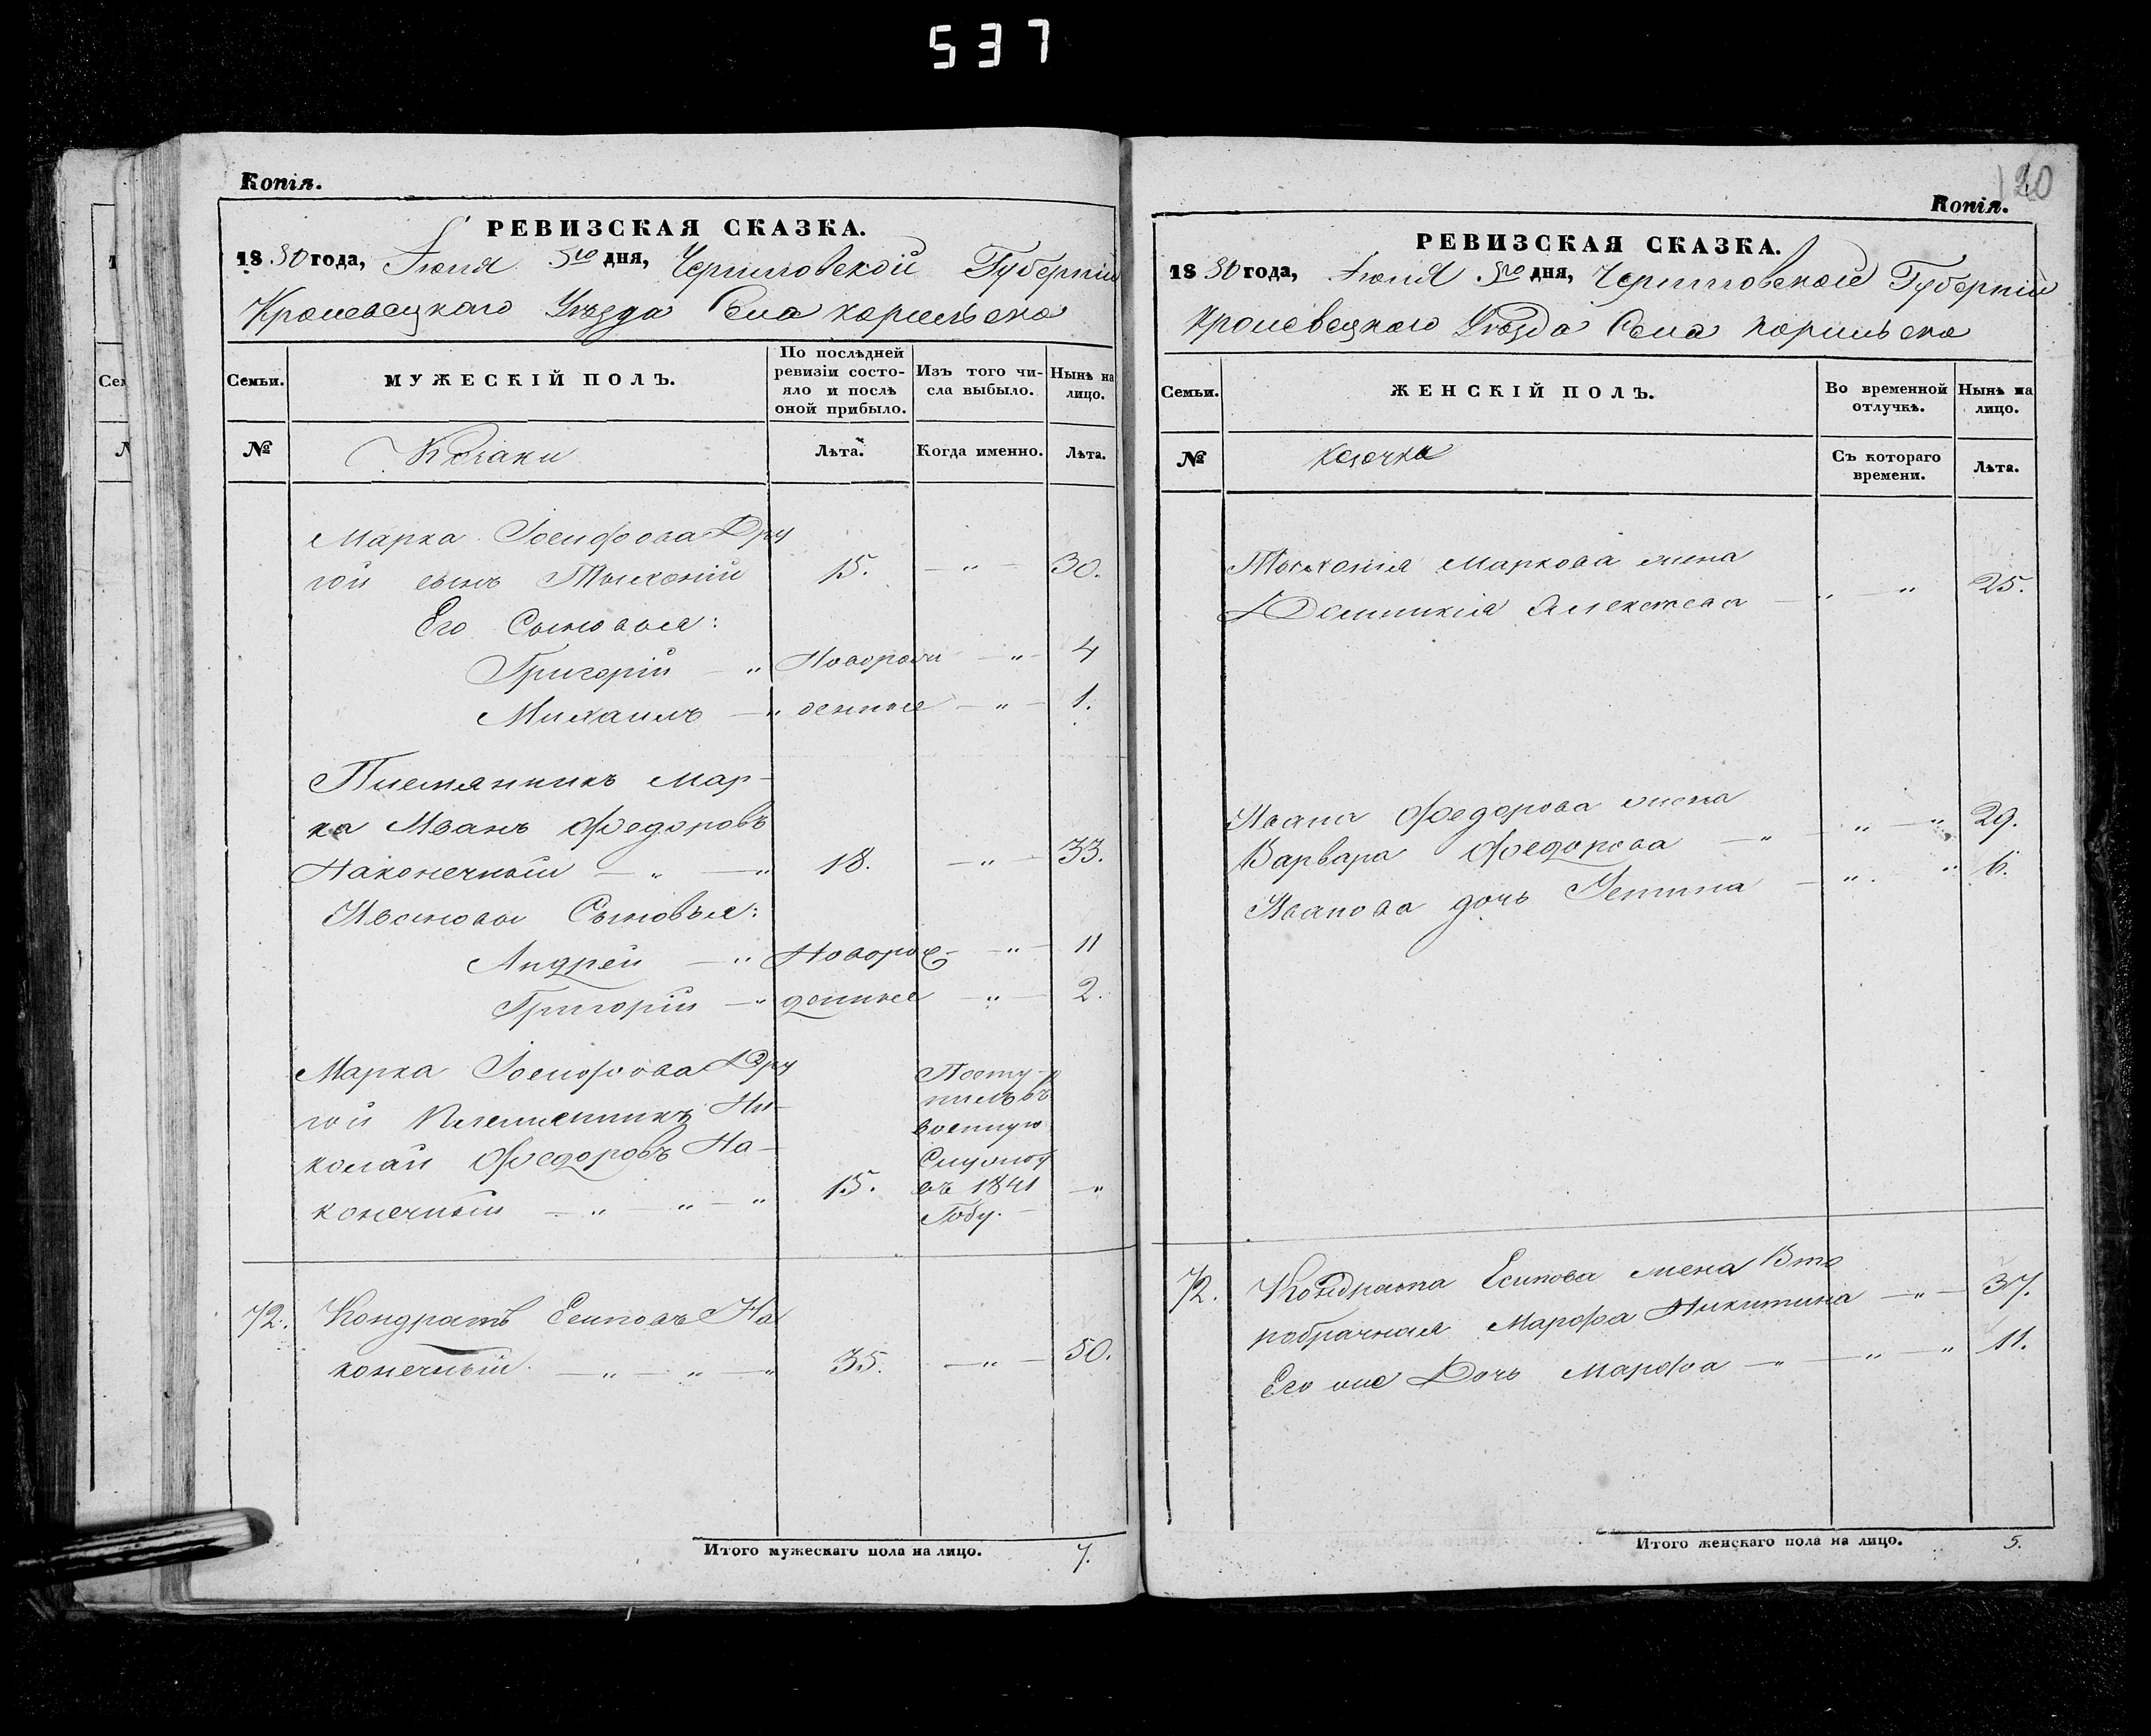 537
Копія.
РЕВИЗСКАЯ СКАЗКА.
1850 года, Июня 5го дня, Черниговской Губерніи
Кролевецкаго Уѣзда Села
Семьи.
МУЖЕСКІЙ ПОЛЪ.
По послѣдней ревизіи состояло и послѣ оной прибыло.
Изъ того числа выбыло.
Нынѣ на лицо.
№
Козаки
Лѣта.
Когда именно.
Лѣта.
Марка Іосифова Дру
гой сынъ 15. — " — 30.
Его Сыновья:
Григорій — " Новорож — " — 4
Михаилъ — " денные — " — 1.
Племянникъ Мар-
ка Иванъ Федоровъ
Наконечный — " — " 18. — " — 33.
Ивановы Сыновья:
Андрей — " Новорож — " — 11
Григорій — " денные — " — 2.
Марка Іосифова Дру
гой племянникъ Ни-
колай Федоровъ На-
конечный — " — " — " 15. — "
Посту-
пилъ въ
военную
Службу
въ 1841
Году.
72. Кондратъ Есиповъ На
конечный. — " — " — " 35. — " — 50.
Итого мужескаго пола на лицо. 7.
120
Копія.
РЕВИЗСКАЯ СКАЗКА.
1850 года, Июня 5го дня, Черниговской Губерніи
Кролевецкаго Уѣзда Села
Семьи.
ЖЕНСКІЙ ПОЛЪ.
Во временной отлучкѣ.
Нынѣ на лицо.
№
Съ котораго времени.
Лѣта.
Маркова жена
Алексѣева — " — " 25.
Ивана Федорова жена
Варвара Федорова — " — " — " 29.
Иванова дочь — " — " 6.
72. Кондрата Есипова жена Вто
робрачная Марфа Никитина — " — 37.
Его же Дочь Марфа — " — " — " 11.
Итого женскаго пола на лицо. 5.